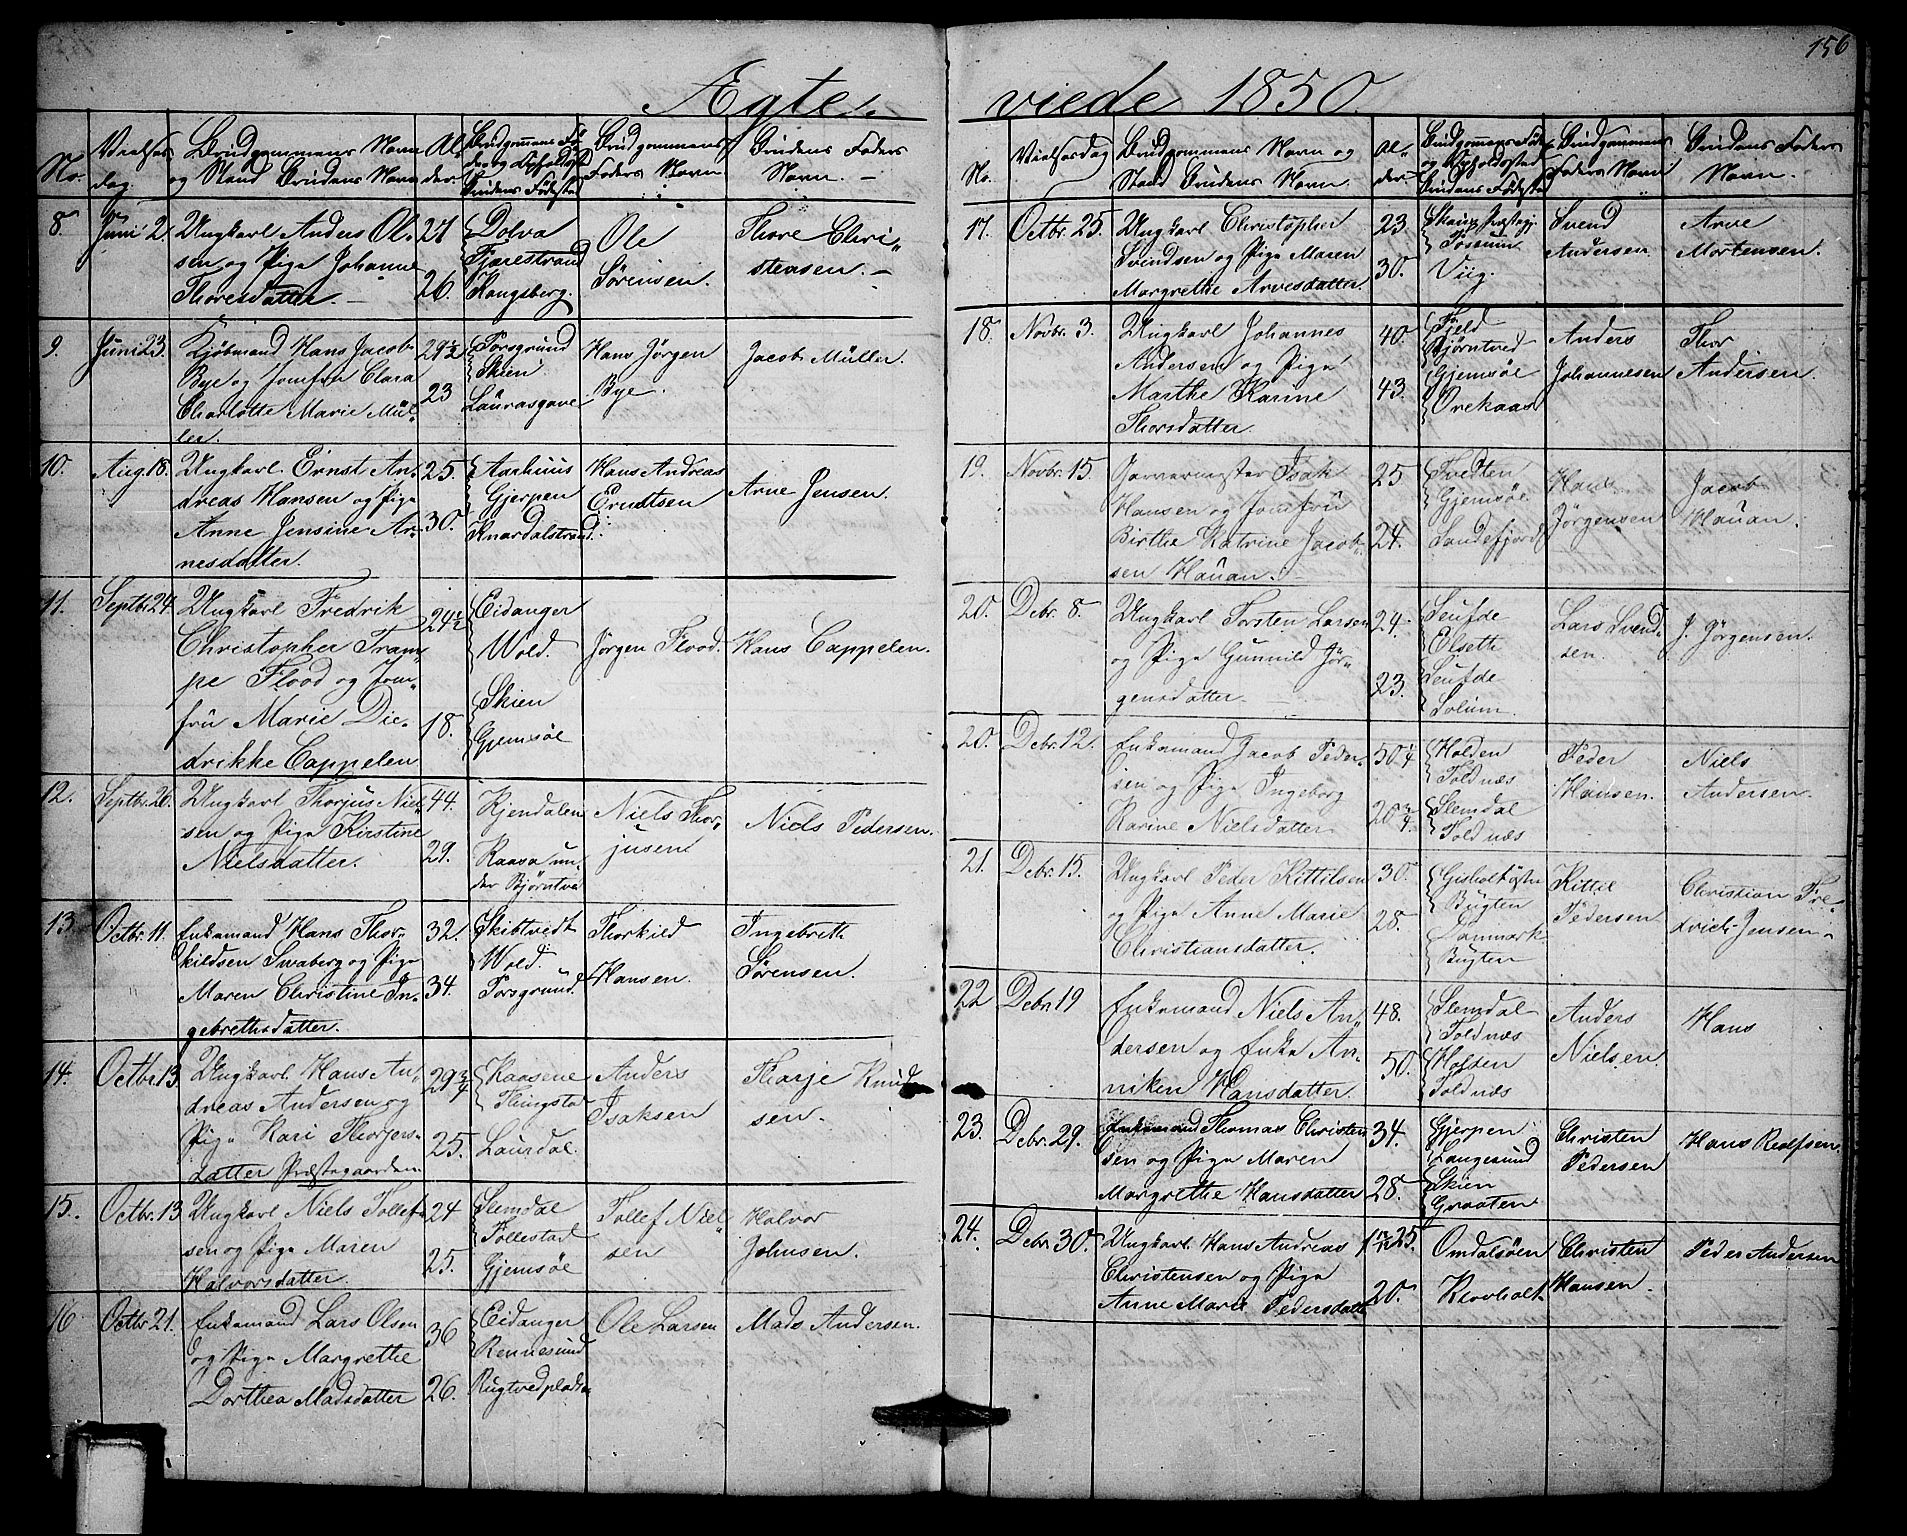 156
Ægte- viede 1850.
No.
Vielses-
dag.
Brudgommens Navn
og Stand Brudens Navn
Al-
der.
Brudgommens Fø-
Brudens Fødested
Brudgommens
Faders Navn.
Brudens Faders
Navn.
8
Juni 2.
Ungkarl Anders Ol-
sen og Pige Johanne
Thoresdatter
27
26.
Dolva
Fjærestrand
Kongsberg.
Ole
Sørensen.
Thore Chri-
stensen.
9.
Juni 23.
Kjøbmand Hans Jacob
Bye og Jomfru Clara
Charlotte Marie Mül-
ler.
29½
23
Porsgrund
Skien
Laurasgave
Hans Jörgen
Bye.
Jacob Müller.
10.
Aug. 18.
Ungkarl Ernst An-
dreas Hansen og Pige
Anne Jensine Ar-
nesdatter.
25.
30.
Aarhuus
Gjerpen
Knardalstrand.
Hans Andreas
Erndtsen
Arne Jensen.
11.
Septbr. 24.
Ungkarl Fredrik
Christopher Tram-
pe Flood og Jom-
fru Marie Die-
drikke Cappelen
24½
18.
Eidanger
Wold.
Skien
Gjemsöe
Jörgen Flood.
Hans Cappelen.
12.
Septbr. 26.
Ungkarl Thorjus Niel-
sen og Pige Kirstine
Nielsdatter.
44.
29.
Kjendalen
Raasa un-
der Bjørntve
Niels Thor-
jusen
Niels Pedersen.
13.
Octbr. 11.
Enkemand Hans Thor-
kildsen Swaberg og Pige
Maren Christine In-
gebrethsdatter.
32.
34.
Skibtvedt
Wold.
Porsgrund
Thorkild
Hansen.
Ingebreth
Sørensen.
14.
Octbr. 13.
Ungkarl Hans An-
dreas Andersen og
Pige Kari Thorjers-
datter Præstegaarden.
29¾
25.
Kaasene
Laurdal.
Anders
Isaksen
Thorje Knud-
sen.
15.
Octbr. 13
Ungkarl Niels Tollef-
sen og Pige Maren
Halvorsdatter.
24
25.
Slemdal
Follestad
Gjemsöe
Tollef Niel-
sen
Halvor
Johnsen.
16
Octbr. 21.
Enkemand Lars Olsen
og Pige Margrethe
Dorthea Madsdatter
36
26.
Eidanger
Rennesund
Rugtvedplads
Ole Larsen
Mads Andersen.
No.
Vielsesdag
Brudgommens Navn og
Stand Brudens Navn.
Al-
der.
Brudgommens Føde
og Opholdssted
Brudens Fødested
Brudgommens
Faders Navn
Brudens Faders
Navn.
17.
Octbr. 25.
Ungkarl Christopher
Svindsen og Pige Maren
Margrethe Arvesdatter.
23.
30.
Viig.
Svend
Andersen
Arve
Mortensen.
18.
Novbr. 3.
Ungkarl Johannes
Andersen og Pige
Marthe Karine
Thorsdatter.
40.
43.
Fjeld
Bjørntved
Gjemsöe
Orekaas
Anders
Johannesen
Thor
Andersen.
19.
Novbr. 15.
Garvermester Isak
Hansen og Jomfru
Birthe Katrine Jacob-
sen Hauan.
25
24.
Tvedten
Gjemsöe
Sandefjord
Hans
Jörgensen
Jacob
Hauan.
20.
Debr. 8.
Ungkarl Torsten Larsen
og Pige Gunnild Jör-
gensdatter
24.
23.
Seufde
Elsette
Seufde
Solum.
Lars Svend-
sen.
J. Jörgensen.
20.
Debr. 12.
Enkemand Jacob Peder-
sen og Pige Ingeborg
Karine Nielsdatter
50¼
20¾
Holden
Toldnæs
Slemdal
Toldnæs
Peder
Hansen.
Niels
Andersen.
21.
Debr. 15.
Ungkarl Peder Kittilsen
og Pige Anne Marie
Christiansdatter.
30.
28.
Bugten
Danmark
Bugten
Kittil
Pedersen
Christian Fre-
drich Jensen
22
Debr. 19
Enkemand Niels An-
dersen og Enke An-
niken Hansdatter
48.
50.
Slemdal
Toldnæs
Holden
Toldnæs
Anders
Nielsen
Hans
23.
Debr. 29.
Enkemand Thomas Christen
sen og Pige Maren
Margrethe Hansdatter
34.
28.
Gjerpen
Langesund
Skien
Graaten
Christen
Pedersen
Hans Rolfsen.
24.
Debr. 30.
Ungkarl Hans Andreas
Christensen og Pige
Anne Marie Pedersdatt
25.
20.
Omdalsöen
Rovholt
Christen
Hansen.
Peder Andersen